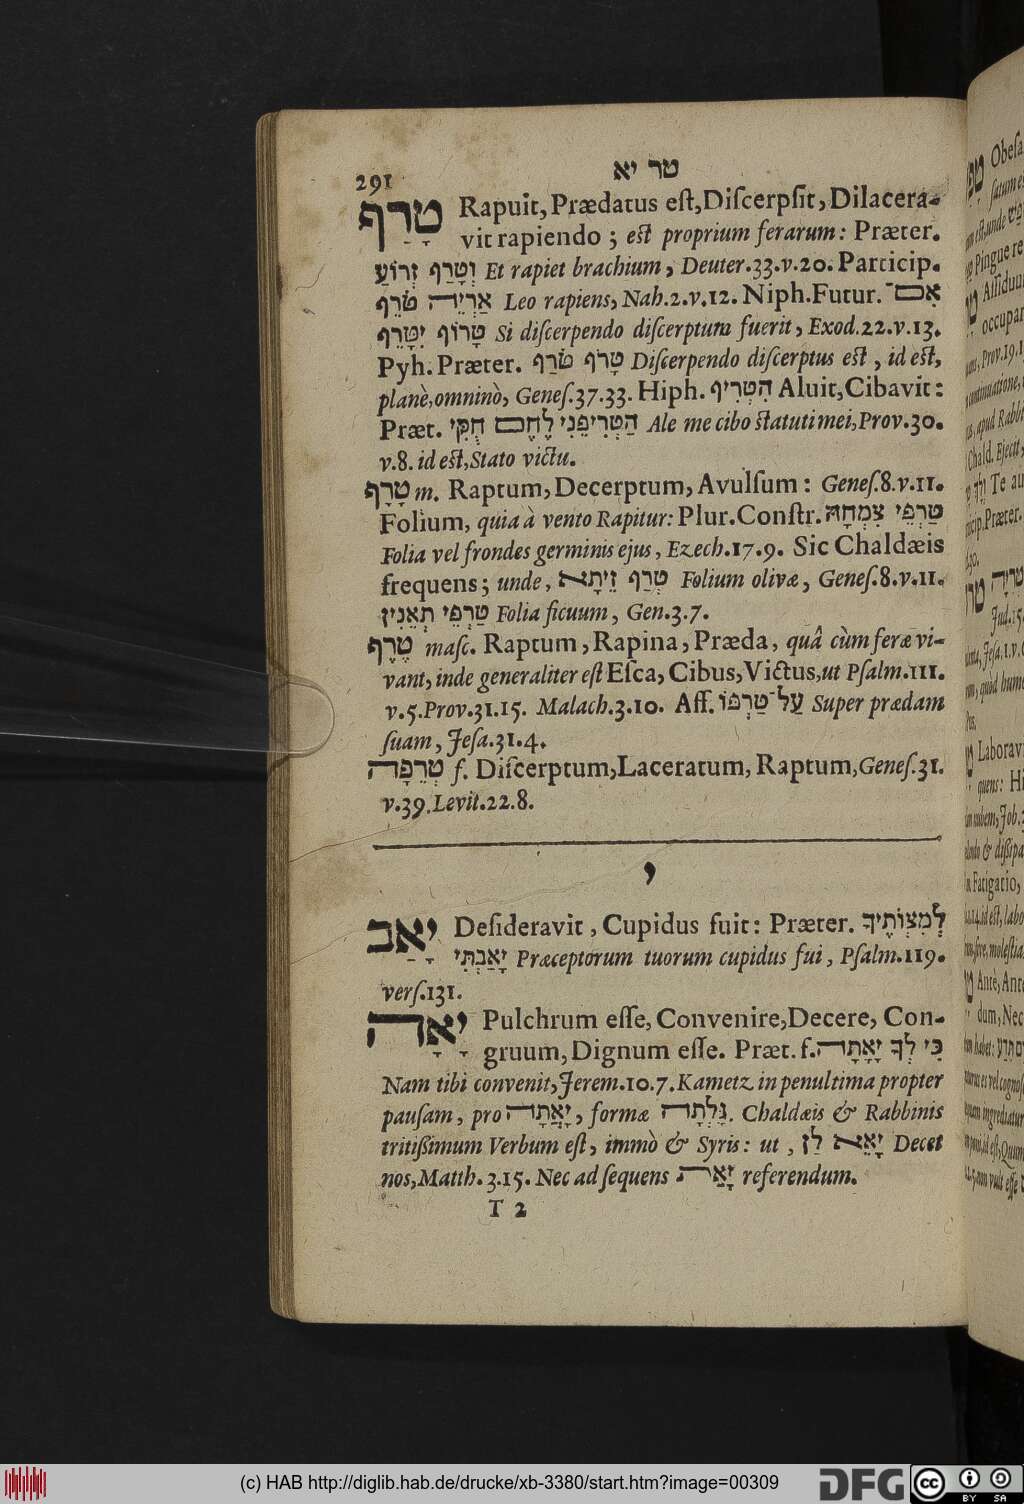 291 טר יא
טָרַף Rapuit, Prædatus eſt, Diſcerpſit, Dilacera-
vit rapiendo; est proprium ferarum: Præter.
וְטָרַף זְרוֹעַ Et rapiet brachium, Deuter.33.v.20. Particip.
אַרְיֵה טֹרֵף Leo rapiens, Nah.2.v.12. Niph.Futur. אִם־
טָרוֹף יִטָּרֵף Si diſcerpendo diſcerptum fuerit, Exod.22.v.13.
Pyh. Præter. טָרֹף טֹרַף Diſcerpendo diſcerptus est, id est,
planè, omninò, Geneſ.37.33. Hiph. הִטְרִיף Aluit, Cibavit:
Præt. הַטְרִיפֵנִי לֶחֶם חֻקִּי Ale me cibo statuti mei, Prov.30.
v.8. id est, Stato victu.
טָרָף m. Raptum, Decerptum, Avulſum: Geneſ.8.v.11.
Folium, quia à vento Rapitur: Plur.Conſtr. טַרְפֵּי צִמְחָהּ
Folia vel frondes germinis ejus, Ezech.17.9. Sic Chaldæis
frequens; unde, טְרַף זֵיתָא Folium olivæ, Geneſ.8.v.11.
טַרְפֵי תְאֵנִין Folia ficuum, Gen.3.7.
טֶרֶף maſc. Raptum, Rapina, Præda, quâ cùm feræ vi-
vant, inde generaliter eſt Eſca, Cibus, Victus, ut Pſalm.111.
v.5. Prov.31.15. Malach.3.10. Aff. עַל־טַרְפּוֹ Super prædam
ſuam, Jeſa.31.4.
טְרֵפָה f. Diſcerptum, Laceratum, Raptum, Geneſ.31.
v.39. Levit.22.8.
י
יָאַב Deſideravit, Cupidus fuit: Præter. לְמִצְוֹתֶיךָ
יָאַבְתִּי Præceptorum tuorum cupidus fui, Pſalm.119.
verſ.131.
יָאָה Pulchrum eſſe, Convenire, Decere, Con-
gruum, Dignum eſſe. Præt. f. כִּי לְךָ יָאָתָה
Nam tibi convenit, Jerem.10.7. Kametz in penultima propter
pauſam, pro יָאֲתָה, formæ גָּלְתָה. Chaldæis & Rabbinis
tritißimum Verbum eſt, immò & Syris: ut, יָאֵא לַן Decet
nos, Matth. 3.15. Nec ad ſequens זָאַה referendum.
T 2
(c) HAB http://diglib.hab.de/drucke/xb-3380/start.htm?image=00309
DFG
cc BY SA